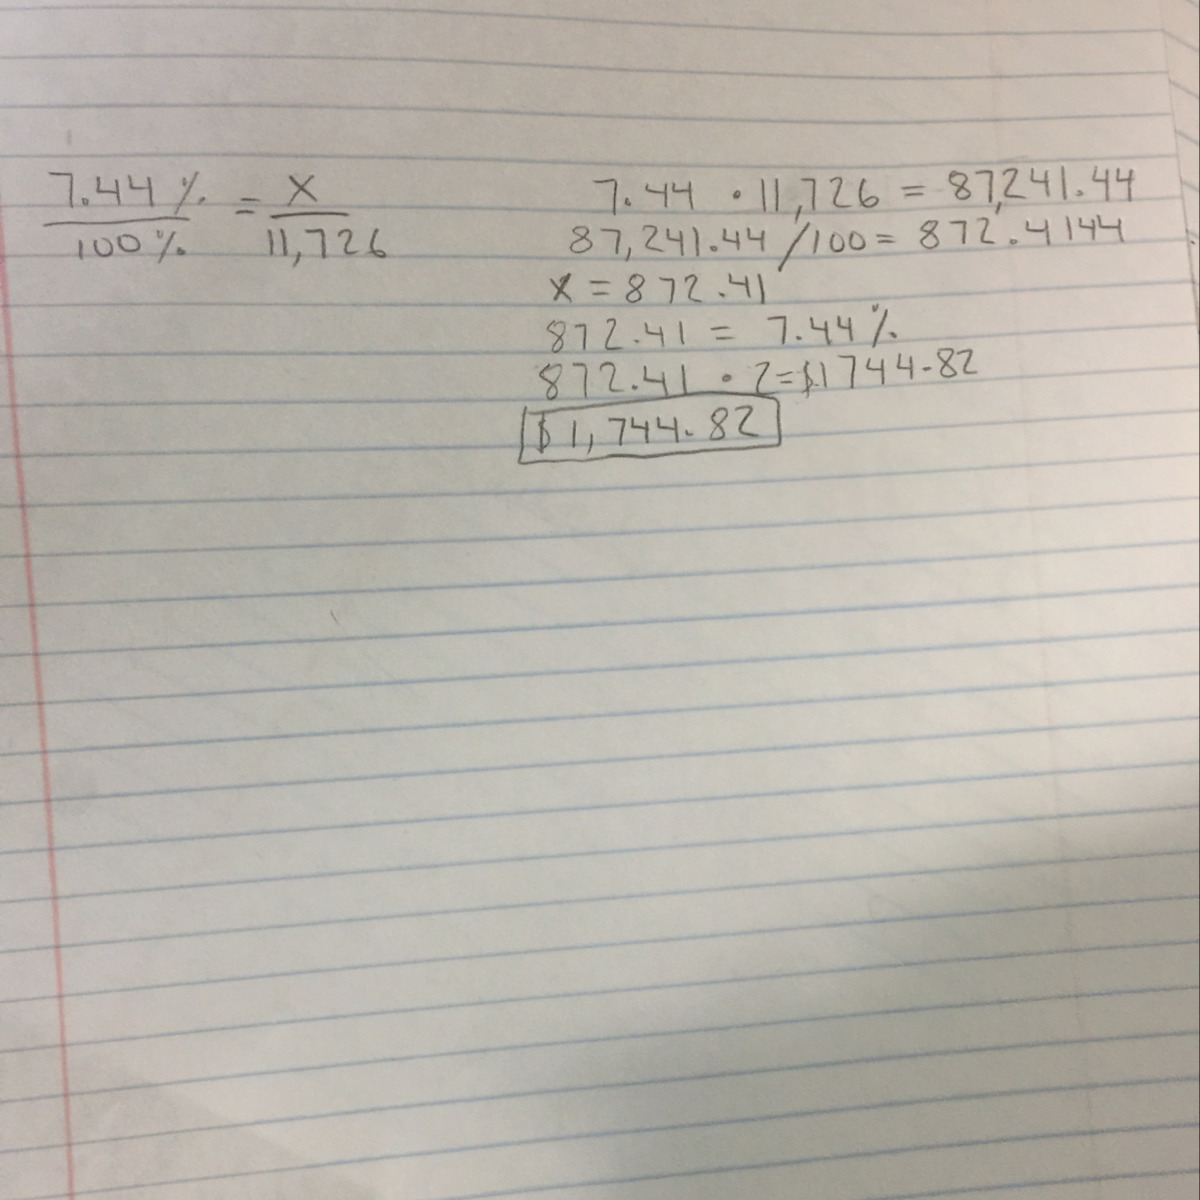 7.44% / 100% = x / 11,726
7.44 · 11,726 = 87,241.44
87,241.44 / 100 = 872.4144
x = 872.41
872.41 = 7.44%
872.41 · 2 = $1744.82
$1,744.82